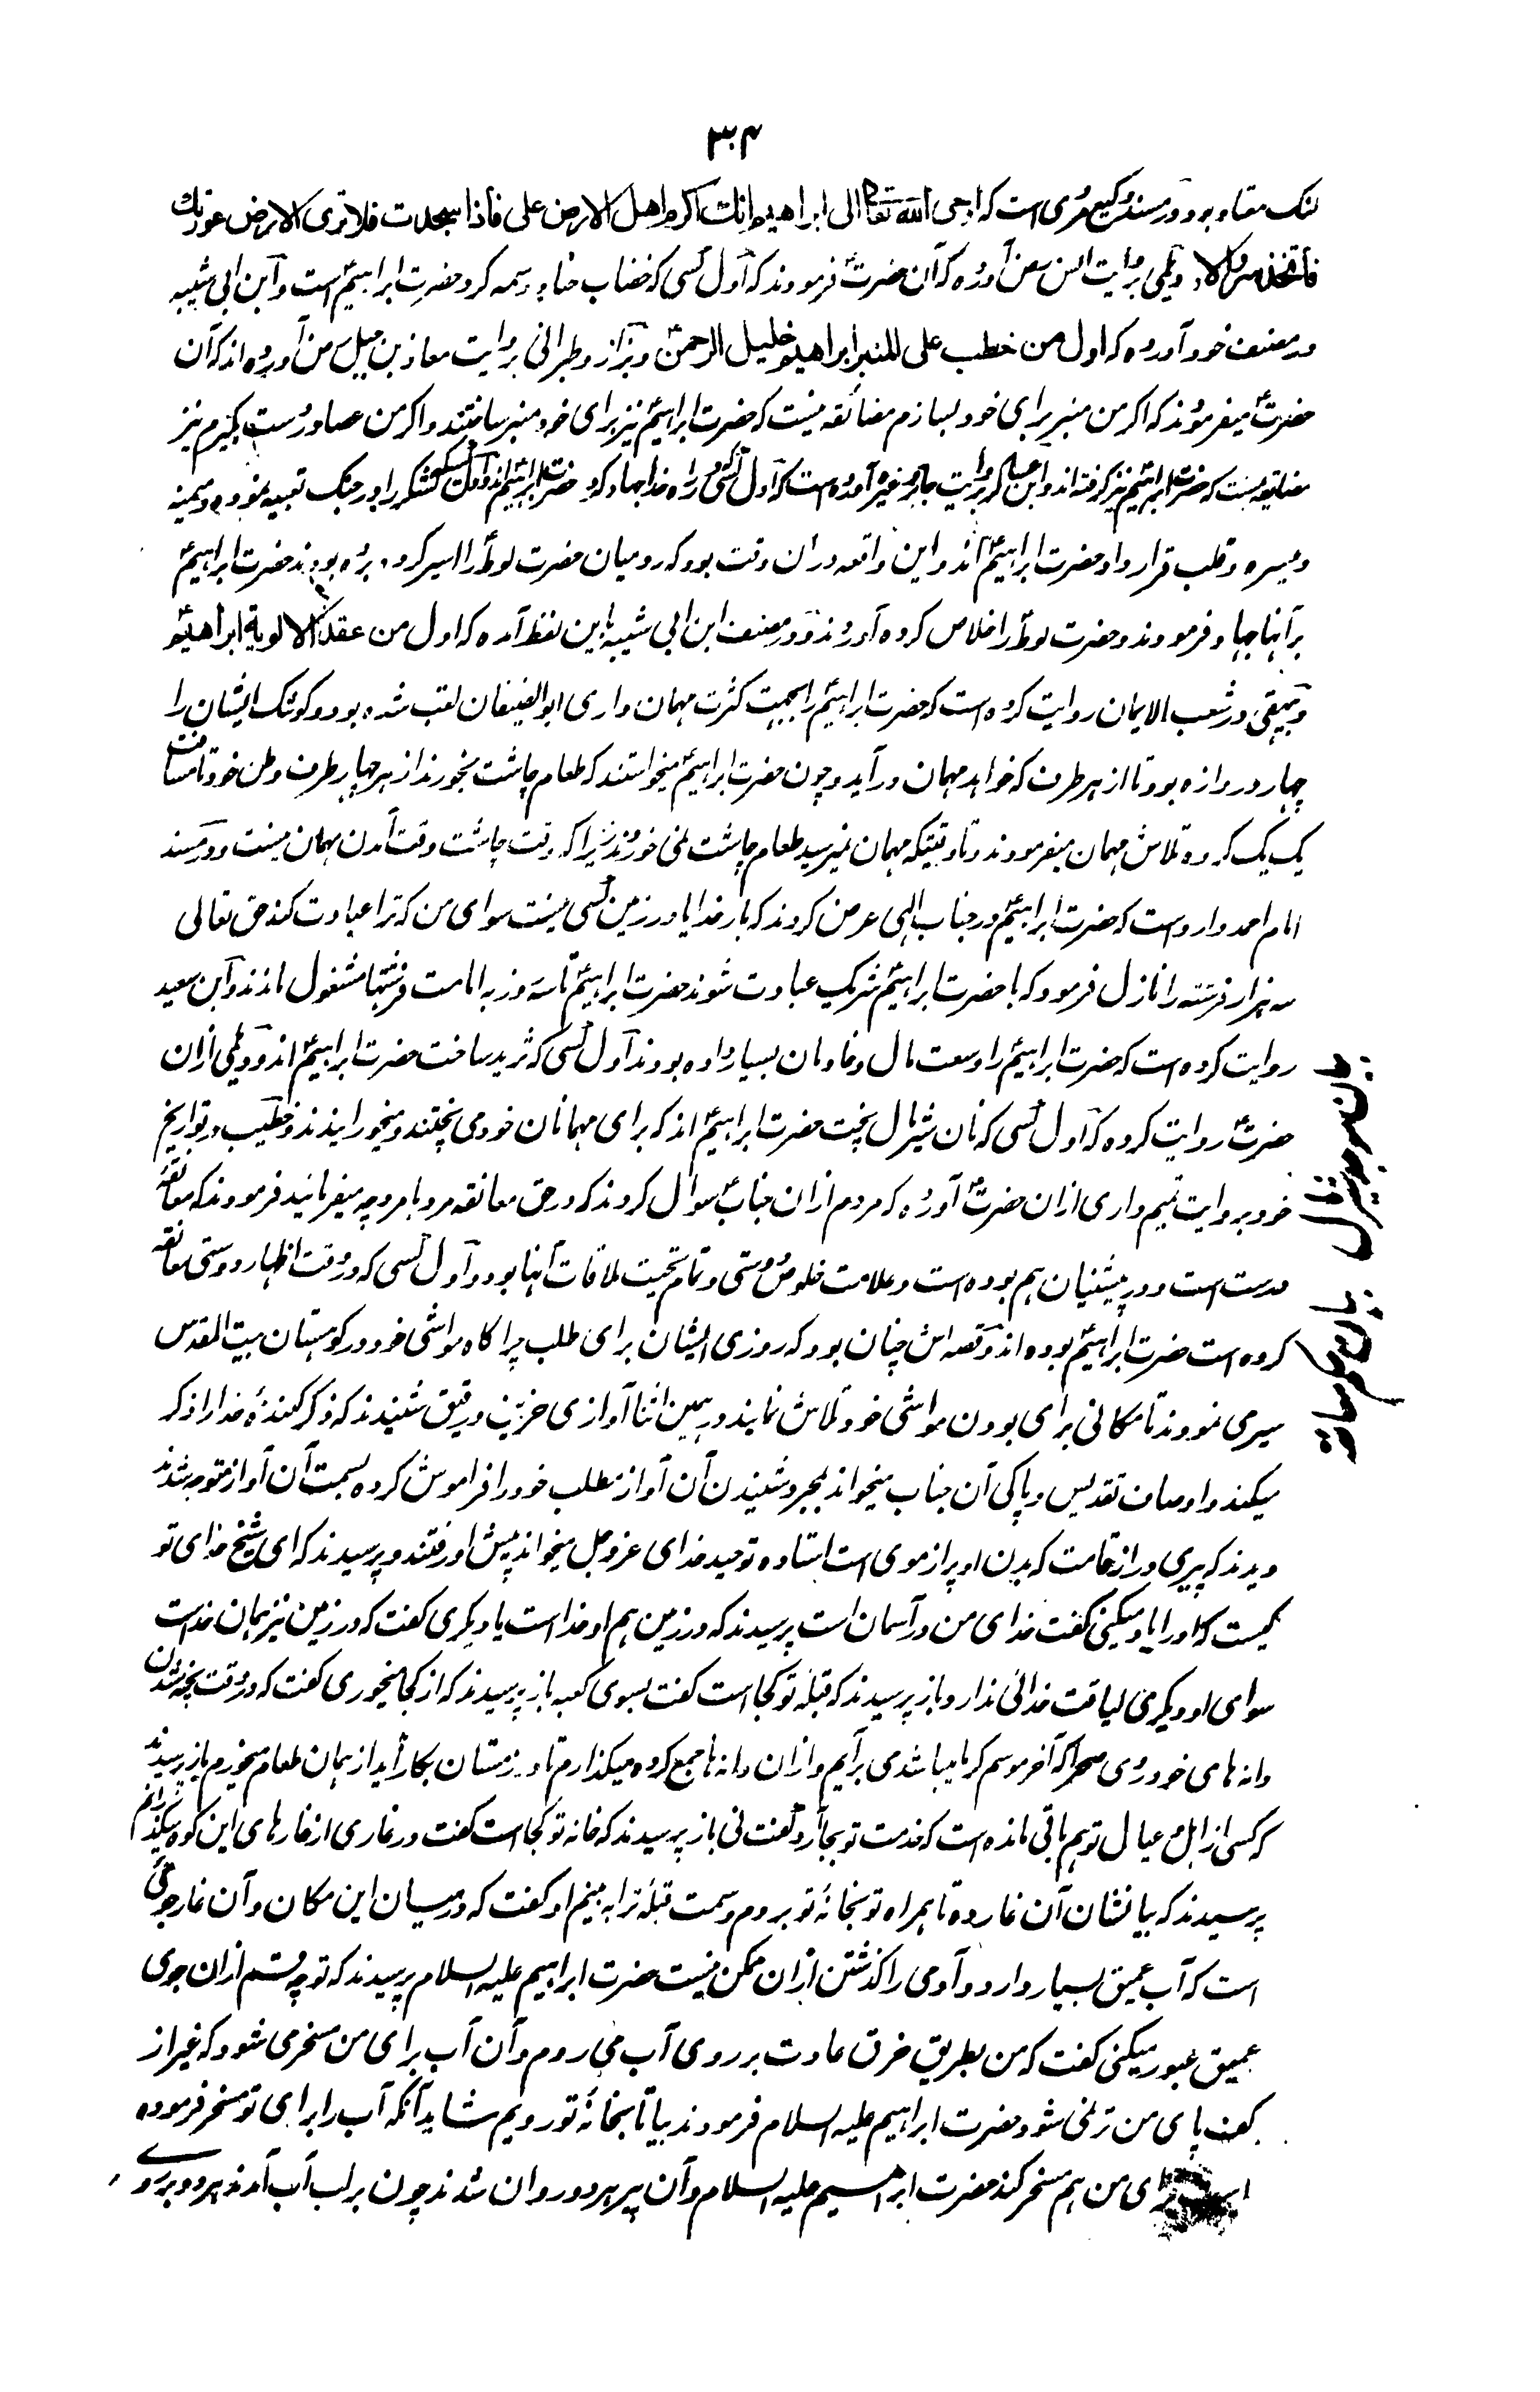 ۳۰۴
لنک معتاد بود و در مسند وکیع مروی است که اوحی الله تعالی الی ابراهیم انک اکرم اهل الارض علی فاذا سجدت فلا تری الارض عورتک
فاتخذ سروالا و دیلمی بروایت انس بن مالک آورده که آن حضرتؐ فرمودند که اول کسی که خضاب حنا و وسمه کرد حضرت ابراهیمؑ است و ابن ابی شیبه
در مصنف خود آورده که اول من خطب علی المنبر ابراهیم خلیل الرحمنؑ و بزاز و طبرانی بروایت معاذ بن جبل آورده اند که آن
حضرتؐ میفرمودند که اگر من منبر برای خود بسازم مضائقه نیست که حضرت ابراهیمؑ نیز برای خود منبر ساختند و اگر من عصا در دست بگیرم نیز
مضایقه نیست که حضرت ابراهیمؑ نیز گرفته اند و ابن عساکر بروایت جابر و غیره آورده است که اول کسی که در راه خدا جهاد کرد حضرت ابراهیمؑ اند و اول کسی که لشکر را در جنگ تعبیه نمود و میمنه
و میسره و قلب قرار داد حضرت ابراهیمؑ اند و این واقعه در آن وقت بود که رومیان حضرت لوطؑ را اسیر کرده برده بودند حضرت ابراهیمؑ
بر آنها جهاد فرمودند و حضرت لوطؑ را خلاص کرده آوردند و در مصنف ابن ابی شیبه باین لفظ آمده که اول من عقد الالویة ابراهیمؑ
و بیهقی در شعب الایمان روایت کرده است که حضرت ابراهیمؑ را بجهت کثرت مهمان داری ابو الضیفان لقب شده بود و کوشک ایشان را
چهار دروازه بود تا از هر طرف که خواهد مهمان در آید و چون حضرت ابراهیمؑ میخواستند که طعام چاشت بخورند از هر چهار طرف وطن خود تا مسافت
یک یک کروه تلاش مهمان میفرمودند و تا وقتیکه مهمان نمیرسید طعام چاشت نمی خوردند زیرا که وقت چاشت وقت آمدن مهمان نیست و در مسند
امام احمد وارد است که حضرت ابراهیمؑ در جناب الهی عرض کردند که بار خدایا در زمین کسی نیست سوای من که ترا عبادت کند حق تعالی
سه هزار فرشته را نازل فرمود که با حضرت ابراهیمؑ شریک عبادت شوند حضرت ابراهیمؑ تا سه روز به امامت فرشتها مشغول ماندند و ابن سعید
روایت کرده است که حضرت ابراهیمؑ را وسعت مال و خادمان بسیار داده بودند اول کسی که ثرید ساخت حضرت ابراهیمؑ اند و دیلمی از آن
حضرتؐ روایت کرده که اول کسی که نان شیرمال پخت حضرت ابراهیمؑ اند که برای مهمانان خود می پختند و میخورانیدند و خطیب در تواریخ
خود بروایت تمیم داری از آن حضرتؐ آورده که مردم از آن جنابؐ سوال کردند که در حق معانقه مرد با مرد چه میفرمایند فرمودند که معانقه
درست است و در پیشینیان هم بوده است و علامت خلوص دوستی و تمام تحیت ملاقات آنها بود و اول کسی که در وقت اظهار دوستی معانقه
کرده است حضرت ابراهیمؑ بوده اند و قصه اش چنان بود که روزی ایشان برای طلب چراگاه مواشی خود در کوهستان بیت المقدس
سیر می نمودند تا مکانی برای بودن مواشی خود تلاش نمایند در همین اثنا آوازی حزین و رقیق شنیدند که ذکر کننده خدا را ذکر
میکند و اوصاف تقدیس و پاکی آن جناب میخواند بمجرد شنیدن آن آواز مطلب خود را فراموش کرده بسمت آن آواز متوجه شدند
دیدند که پیری دراز قامت که بدن او پر از موی است استاده توحید خدای عز و جل میخواند پیش او رفتند و پرسیدند که ای شیخ خدای تو
کیست که او را یاد میکنی گفت خدای من در آسمان است پرسیدند که در زمین هم او خدا است یا دیگری گفت که در زمین نیز همان خداست
سوای او دیگری لیاقت خدائی ندارد باز پرسیدند که قبله تو کجا است گفت بسوی کعبه باز پرسیدند که از کجا میخوری گفت که در وقت پخته شدن
دانه های خود روی صحرا که آخر موسم گرما میباشد می برآیم و از آن دانه ها جمع کرده میگذارم تا در زمستان بکار آید از همان طعام میخورم باز پرسیدند
که کسی از اهل و عیال تو هم باقی مانده است که خدمت تو بجا آرد گفت نی باز پرسیدند که خانه تو کجا است گفت در غاری از غارهای این کوه میگذرانم
پرسیدند که بیا نشان آن غار ده تا همراه تو بخانۀ تو بروم و سمت قبلۀ ترا به بینم او گفت که در میان این مکان و آن غار جوئی
است که آب عمیق بسیار دارد و آدمی را گذشتن از آن ممکن نیست حضرت ابراهیم علیه السلام پرسیدند که تو چه قسم از ان جوی
عمیق عبور میکنی گفت که من بطریق خرق عادت بر روی آب می روم و آن آب برای من مسخر می شود که غیر از
کف پای من تر نمی شود حضرت ابراهیم علیه السلام فرمودند بیا تا بخانۀ تو رویم شاید آنکه آب را برای تو مسخر فرموده
است برای من هم مسخر کند حضرت ابراهیم علیه السلام و آن پیر هر دو روان شدند چون بر لب آب آمدند هر دو بر روی
بیان موجد شیرمال
بیان معانقه